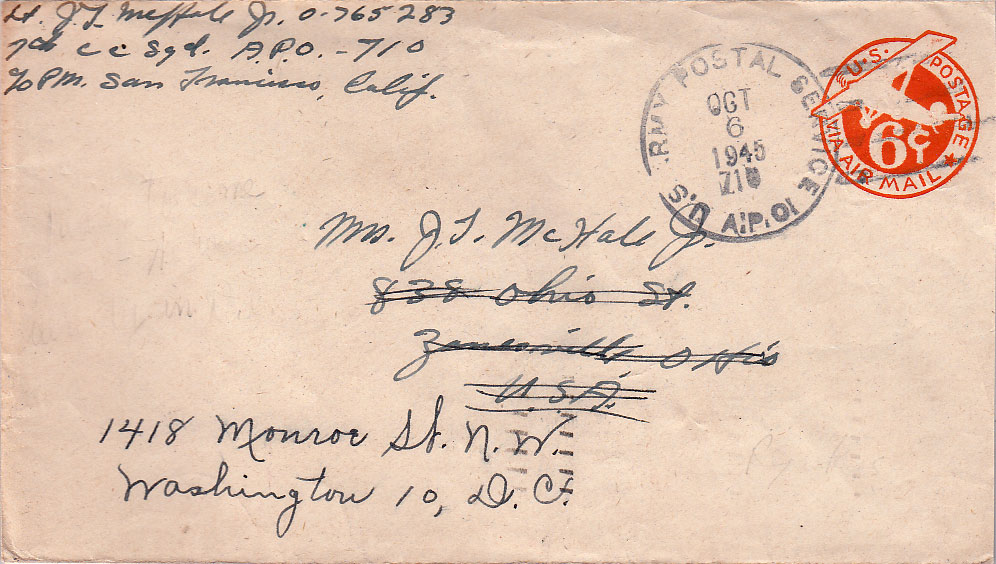 Lt. J.T. McHale Jr. O-765283
7th C C Sqd. A.P.O. -710
c/o P.M. San Francisco, Calif.
ARMY POSTAL SERVICE
OCT
6
1945
710
U.S. A.P.O.
U.S. POSTAGE
6¢
VIA AIR MAIL
Mrs. J.T. McHale Jr.
838 Ohio St.
Zanesville Ohio
U.S.A.
1418 Monroe St. N.W.
Washington 10, D.C.